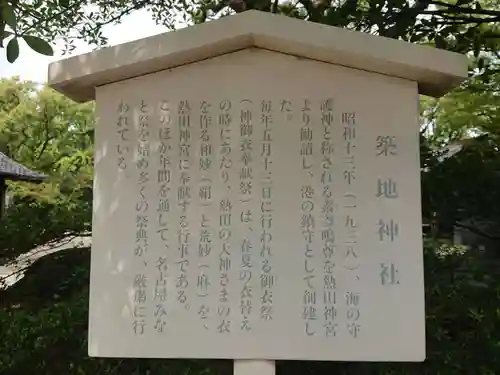 築地神社
昭和十三年（一九三八）、海の守
護神と称される素盞嗚尊を熱田神宮
より勧請し、港の鎮守として創建し
た。
毎年五月十三日に行われる御衣祭
（神御衣奉献祭）は、春夏の衣替え
の時にあたり、熱田の大神さまの衣
を作る和妙（絹）と荒妙（麻）を、
熱田神宮に奉献する行事である。
このほか年間を通して、名古屋みな
と祭を始め多くの祭典が、厳粛に行
われている。